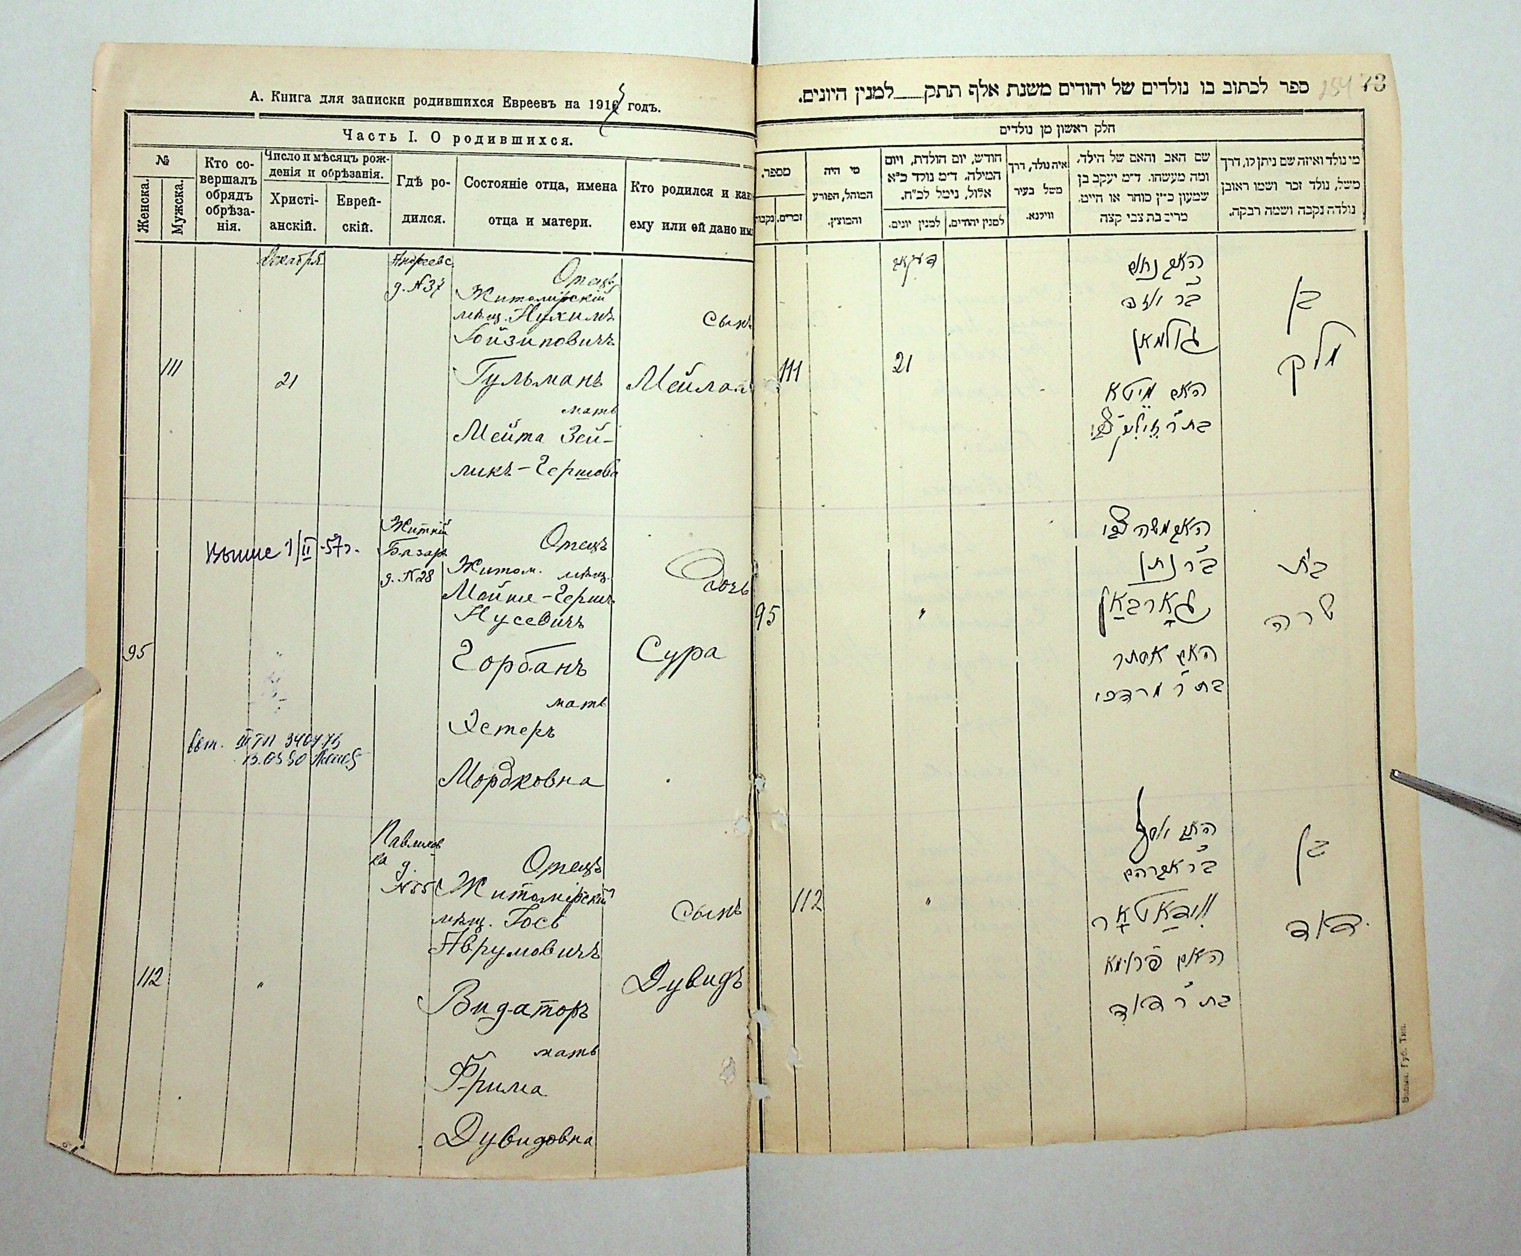 А. Книга для записки родившихся Евреевъ на 191 годъ.
Часть I. О родившихся.
№
Женска.
Мужска.
Кто со-
вершалъ
обрядъ
обрѣза-
нія.
Число и мѣсяцъ рож-
денія и обрѣзанія.
Христі-
анскій.
Еврей-
скій.
Гдѣ ро-
дился.
Состояніе отца, имена
отца и матери.
Кто родился и как
ему или ей дано им
111
Декабрь
21
д. №37
Отецъ
Житомірскій
мѣщ. Нухимъ
Гойзиповичъ
Гульманъ
мать
Мейта Зей-
ликъ-Гершова
сынъ
Мейлах
95
Выше 1/II-57г.
Житній
Базаръ
д. №28
Отецъ
Житом. мѣщ.
Мойше-Герш
Нусевичъ
Горбанъ
мать
Эстеръ
Мордковна
дочь
Сура
112
"
Павликов
ка
д.
Отецъ
Житомірскій
мѣщ. Гось
Аврумовичъ
Видаторъ
мать
Фрима
Дувидовна
сынъ
Дувидъ
ספר לכתוב בו נולדים של יהודים משנת אלף תתק___למנין היונים.
73
חלק ראשון מן נולדים
מספר.
נקבות
זכרים.
מי היה
המוהל, הפורע
והמוצץ.
חודש, יום הולדת, ויום
המילה. ד״מ נולד כ״א
אלול, נימל לכ״ח.
למנין יונים.
למנין יהודים.
איה נולד, דרך
משל בעיר
ווילנא.
שם האב והאם של הילד,
ומה מעשהו. ד״מ יעקב בן
שמעון כ״ץ סוחר או חייט.
מרים בת צבי קצה
מי נולד ואיזה שם ניתן לו, דרך
משל, נולד זכר ושמו ראובן
נולדה נקבה ושמה רבקה.
111
דעקאב
21
האב נחום
גולמאן
האם מיטא
בן
95
"
האב משה צבי
ב״ר נתן
גארבאן
האם אסתר
בת ר׳ מרדכי
בת
שרה
112
"
האב יוסף
ב״ר אברהם
ווידאטאר
האם פרומא
בת ר׳ דוד
בן
דוד
Волын. Губ. Тип.